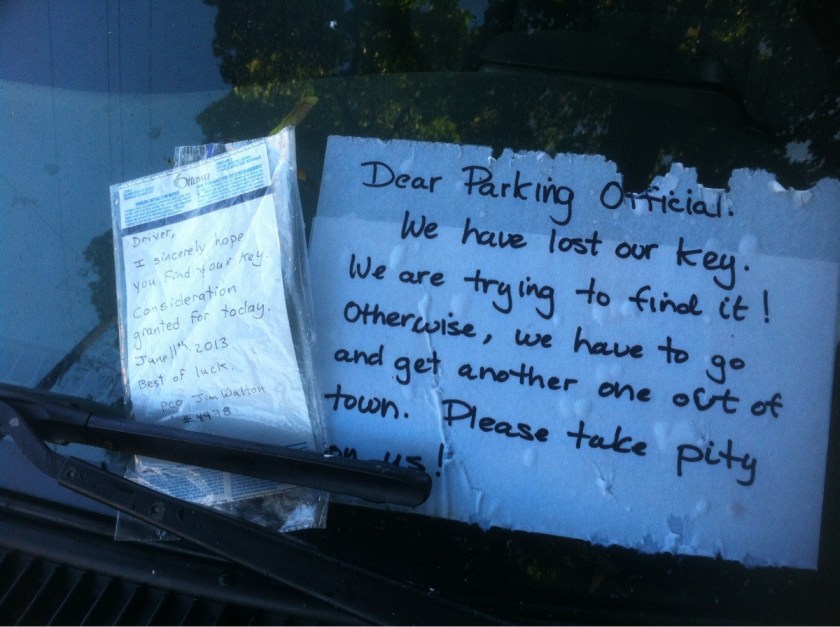 Ottawa
Driver,
I sincerely hope
you find your key.
Consideration
granted for today.
June 11th, 2013
Best of luck.
PCO Jim Watton
# 4978
Dear Parking Official:
We have lost our key.
We are trying to find it!
Otherwise, we have to go
and get another one out of
town. Please take pity
on us!